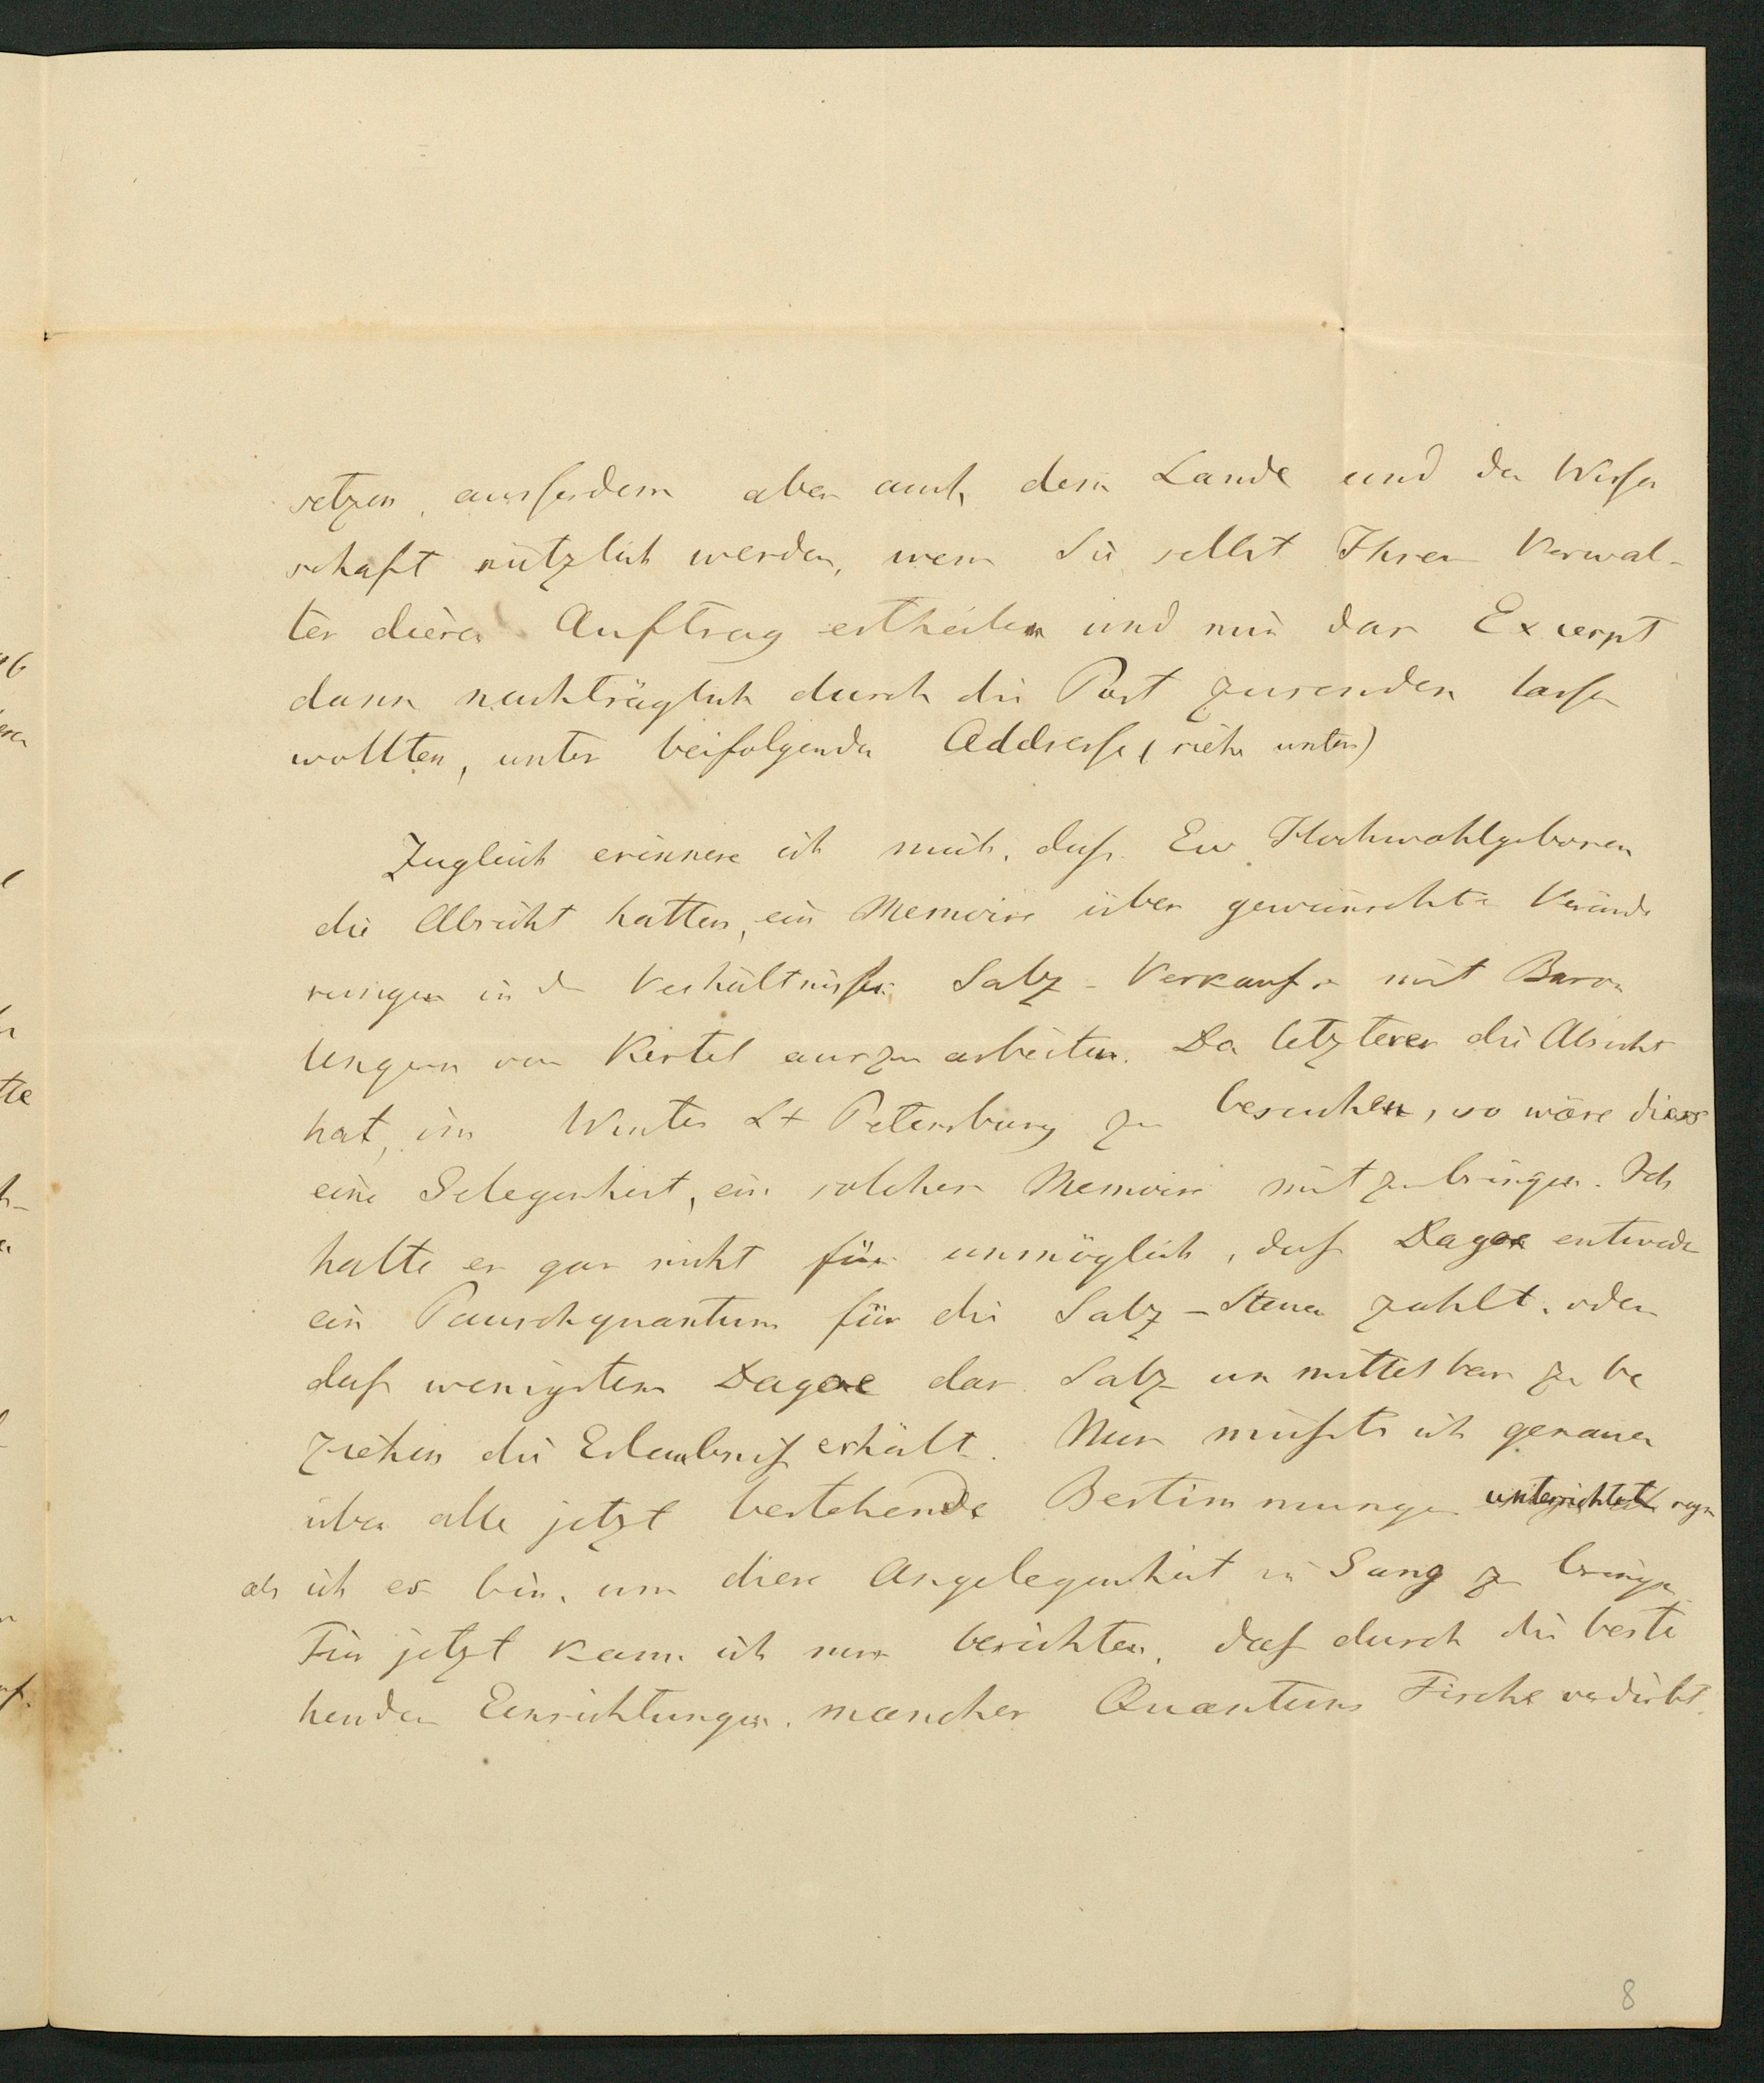 setzen, ausserdem aber auch dem Lande und der Wissen
schaft nützlich werden, wenn Sie selbst Ihrem Verwal-
ter diesen Auftrag ertheilen und mir das Excerpt
dann nachträglich durch die Post zusenden lassen
wollten, unter beifolgender Addresse (siehe unten)
Zugleich erinnere ich mich, dass Ew Hochwohlgeboren
die Absicht hatten, ein Memoire über gewünschte Verände
rungen in d Verhältnissen Salz-Verkaufs mit Baron
Ungern von Kertel auszuarbeiten. Da letzterer die Absicht
hat, im Winter St Petersburg zu besuchen, so wäre diess
eine Gelegenheit, ein solches Memoire mitzubringen. Ich
halte es gar nicht für unmöglich, dass Dagoe entweder
ein Pauschquantum für die Salz-Steuer zahlt, oder
dass wenigstens Dagoe das Salz unmittelbar zu be
ziehen die Erlaubniss erhält. Nur müsste ich genauer
über alle jetzt bestehende Bestimmungen unterrichtet seyn
als ich es bin, um diese Angelegenheit in Gang zu bringen
Für jetzt kann ich nur berichten, dass durch die beste
henden Einrichtungen, manches Quantum Fische verdirbt.
8